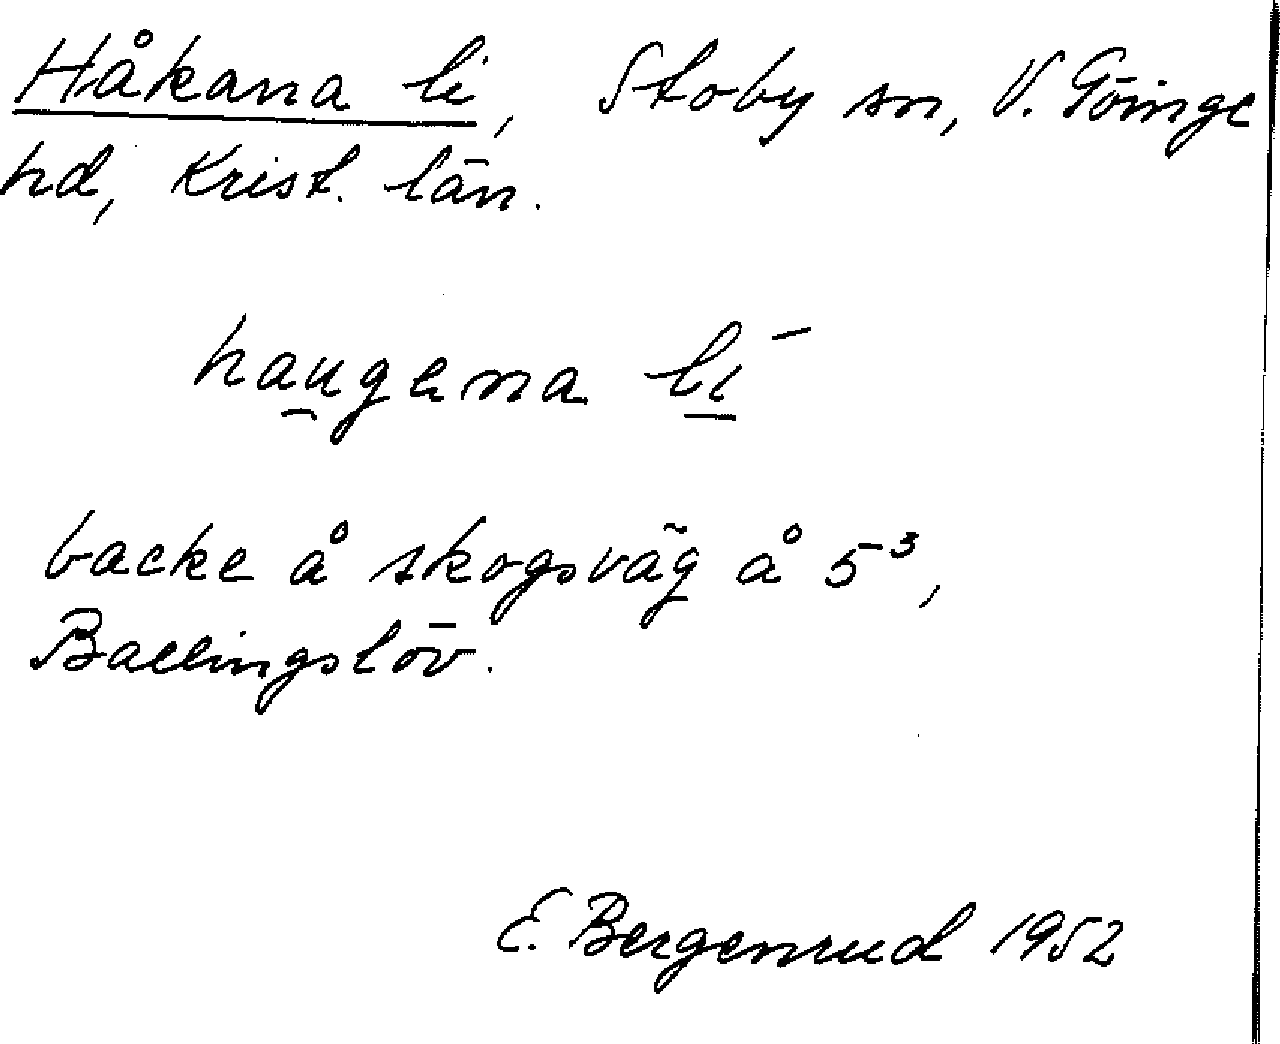 Håkana li, Stoby sn, V. Göinge
hd, Krist. län.
haugena li
backe å skogsväg å 5³,
Ballingslöv.
E. Bergenrud 1952